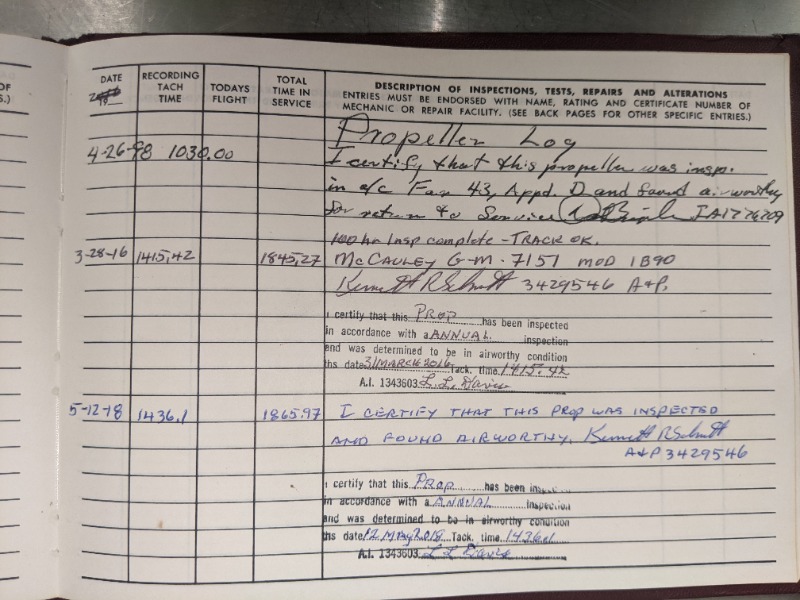 OF
S.)
DATE
RECORDING TACH TIME
TODAYS FLIGHT
TOTAL TIME IN SERVICE
DESCRIPTION OF INSPECTIONS, TESTS, REPAIRS AND ALTERATIONS
ENTRIES MUST BE ENDORSED WITH NAME, RATING AND CERTIFICATE NUMBER OF
MECHANIC OR REPAIR FACILITY. (SEE BACK PAGES FOR OTHER SPECIFIC ENTRIES.)
Propeller Log
4-26-98 1030.00 I certify that this propeller was insp.
in a/c Far 43, Appd. D and found airworthy
for return to Service IA1776709
100 hr Insp complete - TRACK OK.
3-28-16 1415.42 1845.27 McCAULEY G-M-7157 MOD 1B90
Kenneth R Schmitt 3429546 A+P.
I certify that this PROP has been inspected
in accordance with a ANNUAL inspection
and was determined to be in airworthy condition
ths date 31 MARCH 2016 Tack. time. 1415.42
A.I. 1343603 L. L. Davis
5-12-18 1436.1 1865.97 I CERTIFY THAT THIS PROP WAS INSPECTED
AND FOUND AIRWORTHY. Kenneth R Schmitt
A+P 3429546
I certify that this PROP has been inspected
in accordance with a ANNUAL inspection
and was determined to be in airworthy condition
ths date 12 May 2018 Tack. time. 1436.1
A.I. 1343603 L L Davis